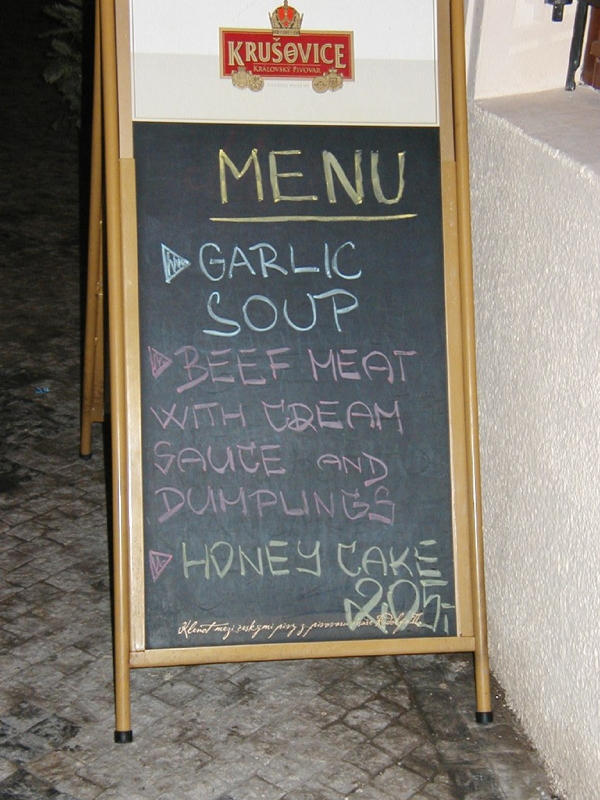 KRUŠOVICE
KRÁLOVSKÝ PIVOVAR
MENU
GARLIC
SOUP
BEEF MEAT
WITH CREAM
SAUCE AND
DUMPLINGS
HONEY CAKE
205,-
Klenot mezi českými pivy z pivovaru císaře Rudolfa II.